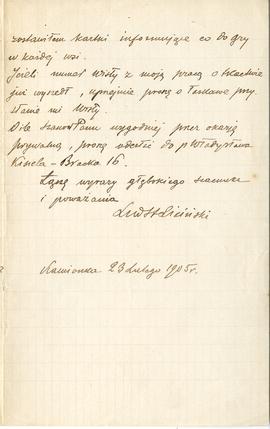 zostawiłem kartki informujące co do gry
w każdej wsi.
Jeżeli numer Wisły z moją pracą o
już wyszedł, uprzejmie proszę o łaskawe przy
słanie mi Wisły.
O ile Szan. Panu wygodniej przez okazję
prywatną, proszę odesłać do p. Władysława
Kisiela – Bracka 16.
Łączę wyrazy głębokiego szacunku
i poważania
Lud. St. Liciński
Kamionka 23 Lutego 1905 r.